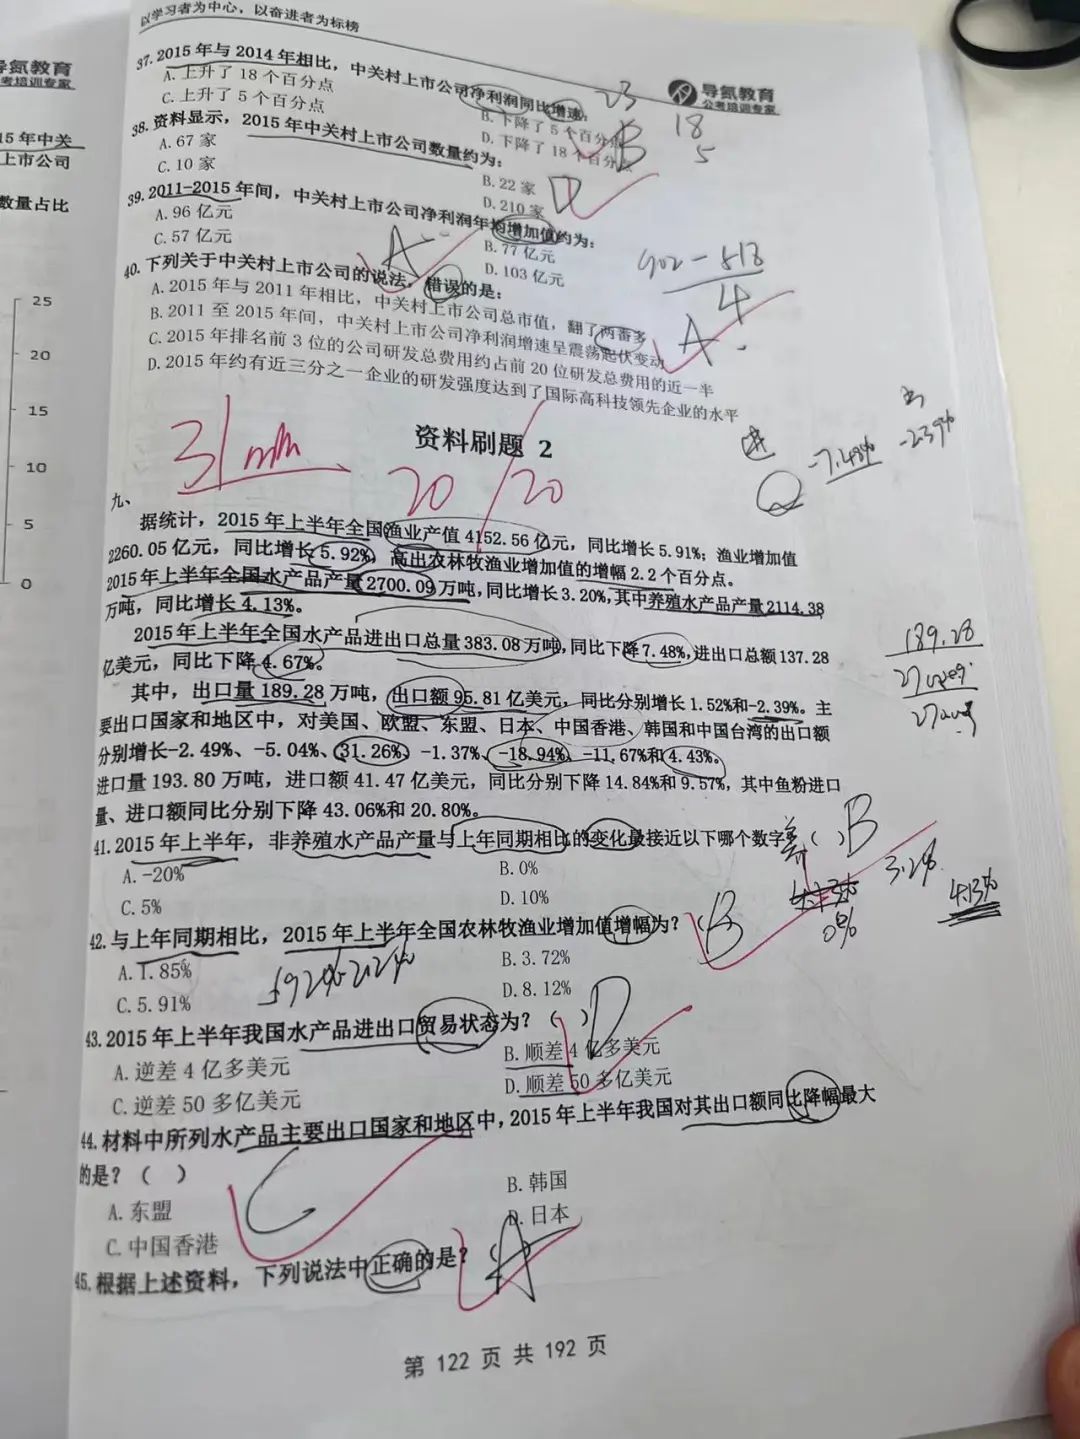 以学习者为中心，以奋进者为标榜
导氮教育
公考培训专家
导氮教育
考培训专家
15年中关
上市公司
数量占比
25
20
15
10
5
0
37.2015年与2014年相比，中关村上市公司净利润同比增速：
A.上升了18个百分点
B.下降了5个百分点
C.上升了5个百分点
D.下降了18个百分点
23
18
5
B
38.资料显示，2015年中关村上市公司数量约为：
A.67家
B.22家
C.10家
D.210家
D
39.2011-2015年间，中关村上市公司净利润年均增加值约为：
A.96亿元
B.77亿元
C.57亿元
D.103亿元
A
902-518
4
40.下列关于中关村上市公司的说法，错误的是：
A.2015年与2011年相比，中关村上市公司总市值，翻了两番多
B.2011至2015年间，中关村上市公司净利润增速呈震荡起伏变动
C.2015年排名前3位的公司研发总费用约占前20位研发总费用的近一半
D.2015年约有近三分之一企业的研发强度达到了国际高科技领先企业的水平
A
资料刷题 2
20/20
进
-7.48%
出
-2.39%
九、
据统计，2015年上半年全国渔业产值4152.56亿元，同比增长5.91%；渔业增加值
2260.05亿元，同比增长5.92%，高出农林牧渔业增加值的增幅2.2个百分点。
2015年上半年全国水产品产量2700.09万吨，同比增长3.20%，其中养殖水产品产量2114.38
万吨，同比增长4.13%。
2015年上半年全国水产品进出口总量383.08万吨，同比下降7.48%，进出口总额137.28
亿美元，同比下降4.67%。
其中，出口量189.28万吨，出口额95.81亿美元，同比分别增长1.52%和-2.39%。主
要出口国家和地区中，对美国、欧盟、东盟、日本、中国香港、韩国和中国台湾的出口额
分别增长-2.49%、-5.04%、31.26%、-1.37%、-18.94%、-11.67%和4.43%。
进口量193.80万吨，进口额41.47亿美元，同比分别下降14.84%和9.57%，其中鱼粉进口
量、进口额同比分别下降43.06%和20.80%。
189.28
41.2015年上半年，非养殖水产品产量与上年同期相比的变化最接近以下哪个数字？（ ）
A.-20%
B.0%
C.5%
D.10%
B
养
4.13%
0%
3.2%
4.13%
42.与上年同期相比，2015年上半年全国农林牧渔业增加值增幅为？（ ）
A.1.85%
B.3.72%
C.5.91%
D.8.12%
B
5.92%-2.2%
43.2015年上半年我国水产品进出口贸易状态为？（ ）
A.逆差4亿多美元
B.顺差4亿多美元
C.逆差50多亿美元
D.顺差50多亿美元
D
44.材料中所列水产品主要出口国家和地区中，2015年上半年我国对其出口额同比降幅最大
的是？（ ）
A.东盟
B.韩国
C.中国香港
D.日本
C
45.根据上述资料，下列说法中正确的是？（ ）
A
第 122 页 共 192 页